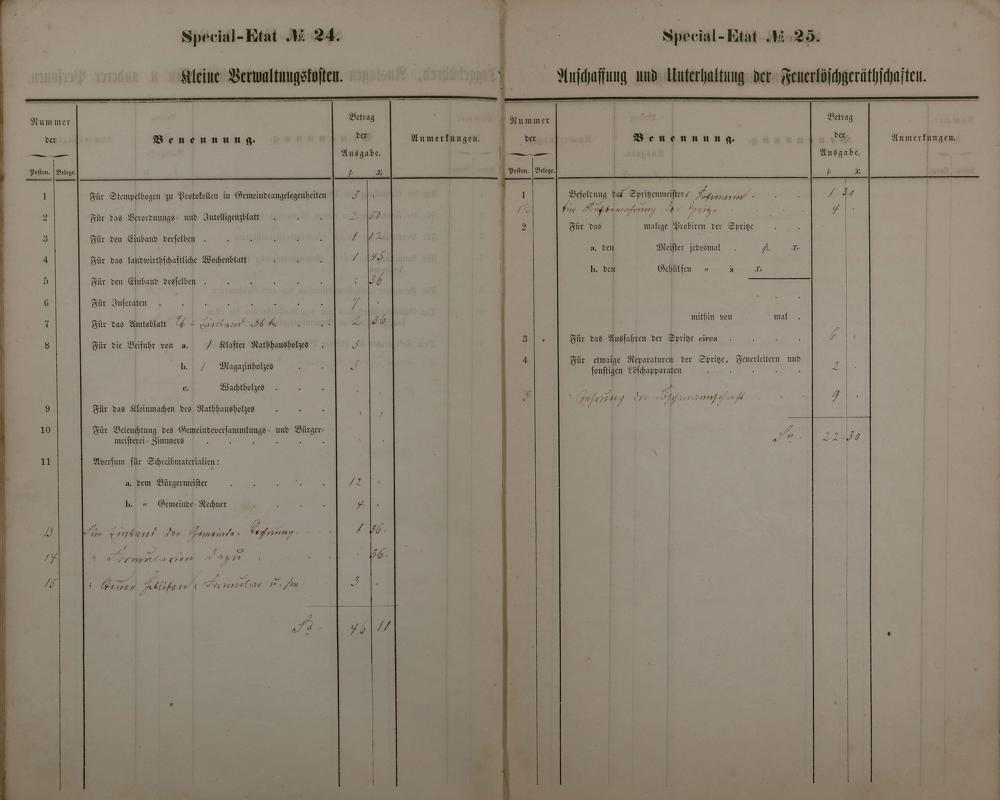 Special-Etat № 24.
Kleine Verwaltungskosten.
Nummer der
Posten. Belege.
Benennung.
Betrag der Ausgabe.
Anmerkungen.
1 Für Stempelbogen zu Protokollen in Gemeindeangelegenheiten 3
2 Für das Verordnungs- und Intelligenzblatt . . . 2 50
3 Für den Einband derselben . . . . . . 1 12
4 Für das landwirthschaftliche Wochenblatt . . . 1 45
5 Für den Einband desselben . . . . . . 36
6 Für Inseraten . . . . . . . . 7
7 Für das Amtsblatt Einband 36 x 2 36
8 Für die Beifuhr von a. 1 Klafter Rathhausholzes . 3
b. 1 Magazinholzes . . 3
c. Wachtholzes . . .
9 Für das Kleinmachen des Rathhausholzes . . .
10 Für Beleuchtung des Gemeindeversammlungs- und Bürger-
meisterei-Zimmers . . . . . .
11 Aversum für Schreibmaterialien:
a. dem Bürgermeister . . . . . 12
b. " Gemeinde-Rechner . . . . 4
13 Für Einband der Gemeinde-Rechnung 1 36
14 " Formularien dazu 36
15 " Formular u. 3
Sa. 46 11
Special-Etat № 25.
Anschaffung und Unterhaltung der Feuerlöschgeräthschaften.
Nummer der
Posten. Belege.
Benennung.
Betrag der Ausgabe.
Anmerkungen.
1 Besoldung des Spritzenmeisters 1 30
für Aufbewahrung der Spritze 4
2 Für das malige Probiren der Spritze . .
a. den Meister jedesmal . fl. x.
b. den Gehülfen " à x.
mithin von mal .
3 Für das Ausfahren der Spritze circa . . . . 6
4 Für etwaige Reparaturen der Spritze, Feuerleitern und
sonstigen Löschapparaten . . . . . 2
5 der Löschmannschaft 9
Sa. 22 30